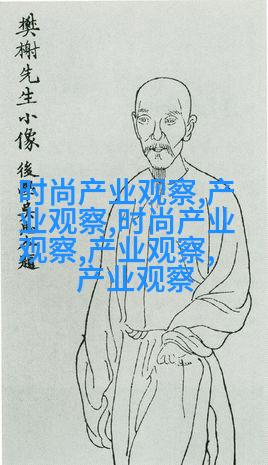 樊榭先生小像
後 題
时尚产业观察,产
业观察,时尚产业
观察,产业观察,
产业观察